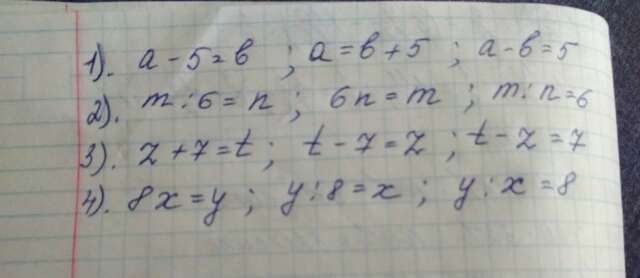 1). a - 5 = b ; a = b + 5 ; a - b = 5
2). m : 6 = n ; 6n = m ; m : n = 6
3). z + 7 = t ; t - 7 = z ; t - z = 7
4). 8x = y ; y : 8 = x ; y : x = 8